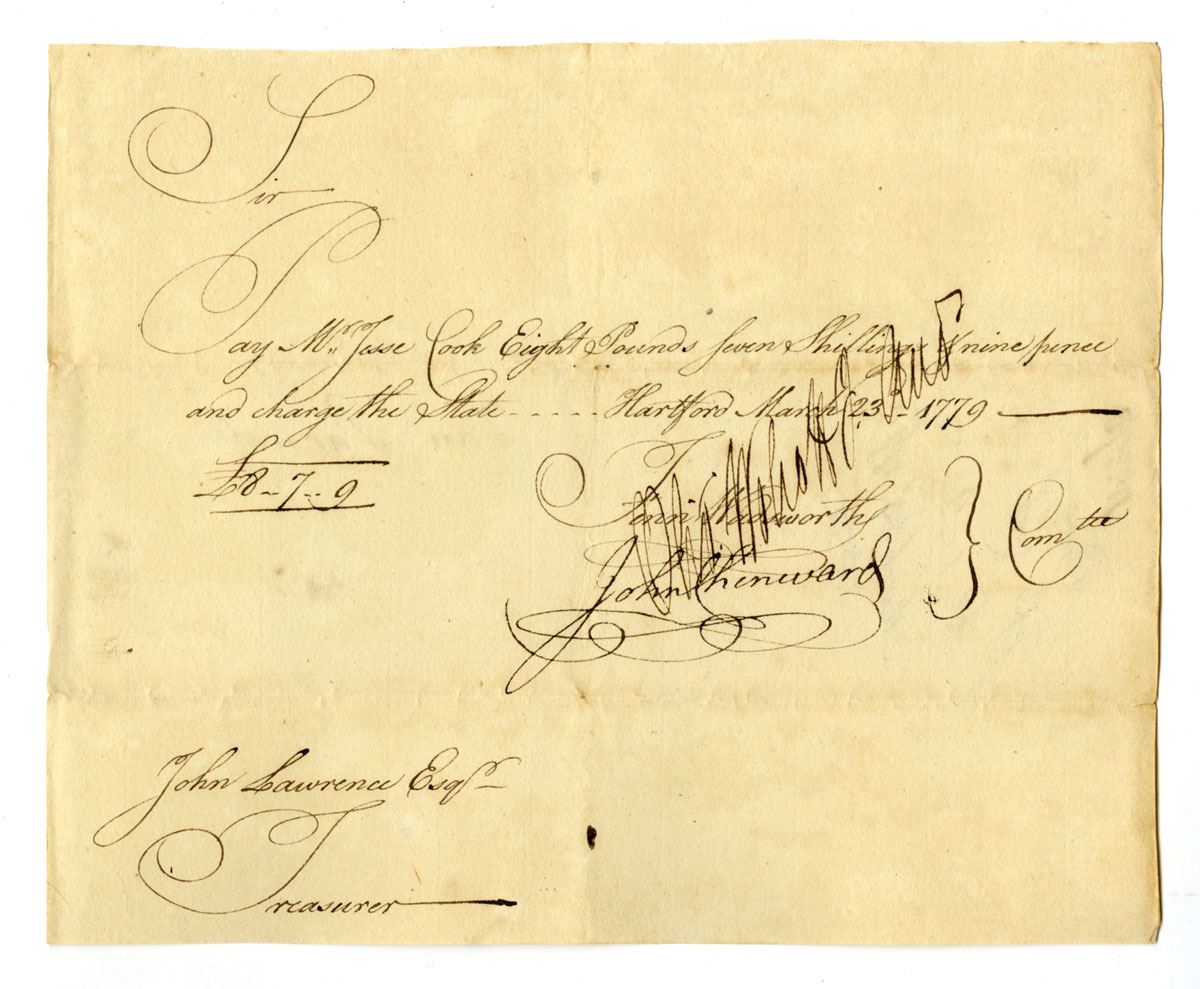 Sir
Pay Mr. Jesse Cook Eight Pounds seven Shillings & nine pence
and charge the State - - - - - Hartford March 23 - 1779
£8 - 7 - 9
Fenn Wadsworth
John Chenward
Comtee
John Lawrence Esqr
Treasurer